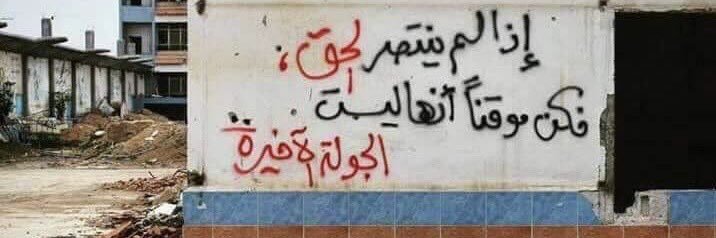 إذا لم ينتصر الحق،
فكن موقناً أنها ليست
الجولة الأخيرة..